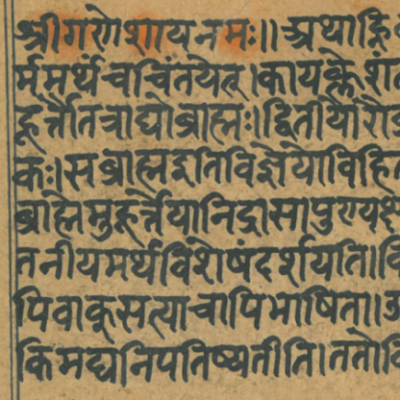 श्रीगणेशायनमः॥अथाह्नि
र्ममर्थंचचिंतयेत्।कायक्लेशं
हूर्त्तौतत्राद्योब्राह्मः।द्वितीयोरौ
कः।सब्राह्मइतिविज्ञेयोविहि
ब्राह्मेमुहूर्त्तेयानिद्रासापुण्यक्ष
तनीयमर्थविशेषंदर्शयति।
पिवाकुसत्याचापिभाषिता।
किमद्यनिपतिष्यतीति।ततो